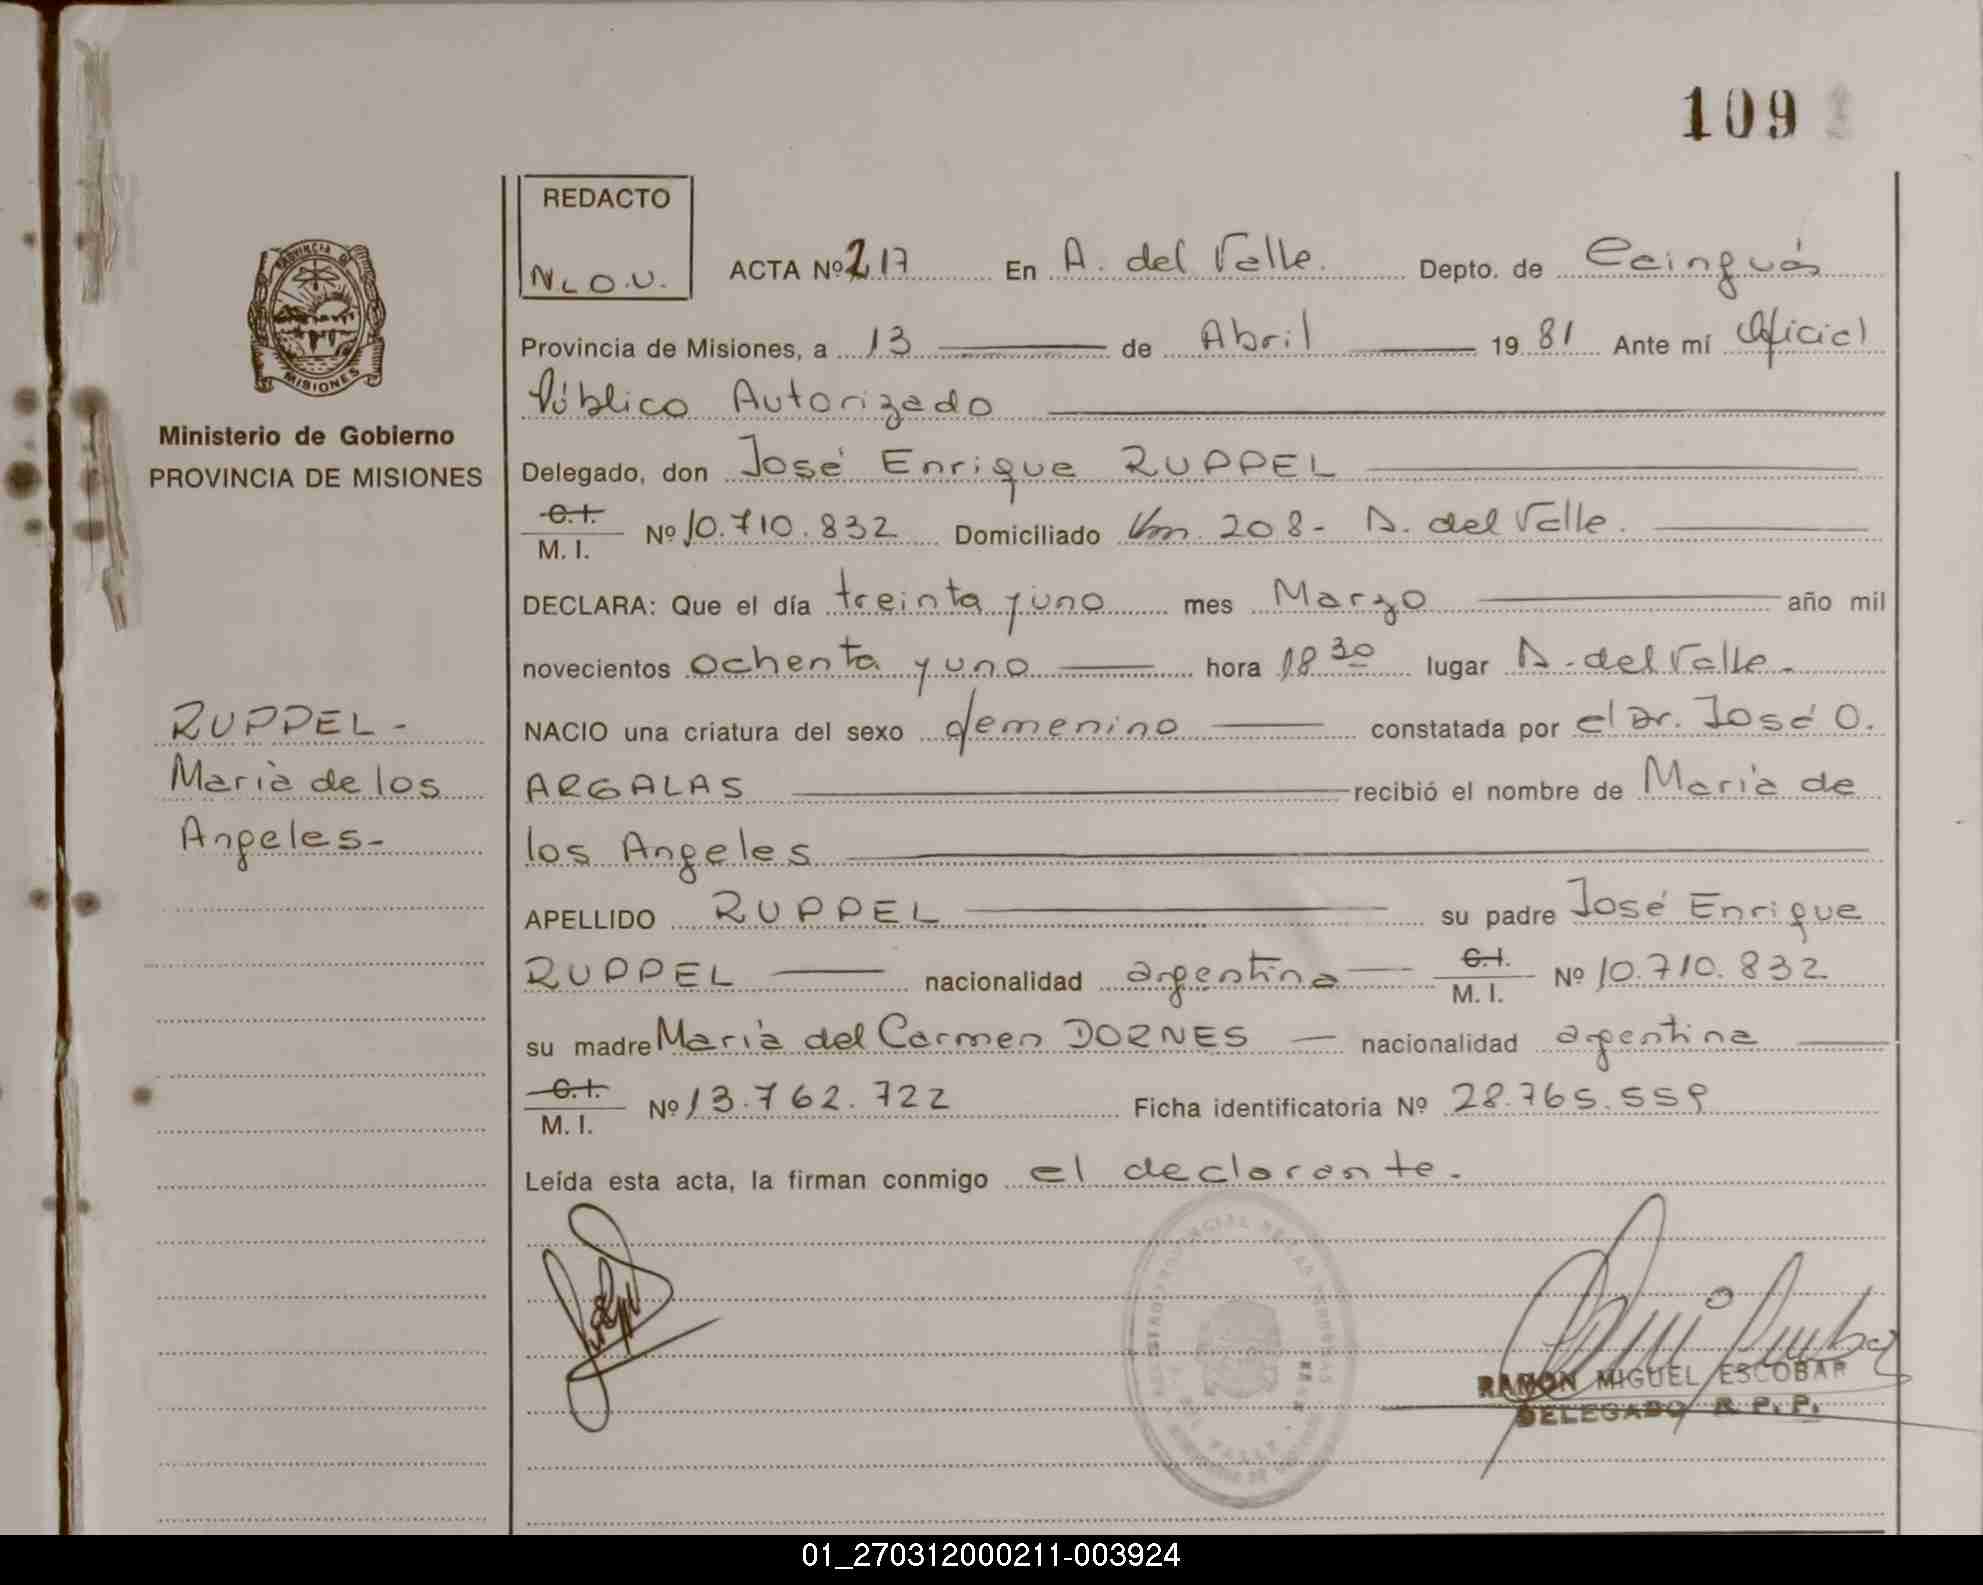 109
REDACTO
N.L.O.U.
ACTA Nº 217 En A. del Valle. Depto. de Cainguás
Provincia de Misiones, a 13 de Abril 1981 Ante mí Oficial
Público Autorizado
Delegado, don José Enrique RUPPEL
C.I.
M. I. Nº 10.710.832 Domiciliado Km. 208 - A. del Valle.
DECLARA: Que el día treinta y uno mes Marzo año mil
novecientos ochenta y uno hora 18 30 lugar A. del Valle.
NACIO una criatura del sexo femenino constatada por el Dr. José O.
ARGALAS recibió el nombre de María de
los Angeles
APELLIDO RUPPEL su padre José Enrique
RUPPEL nacionalidad argentina C.I. M. I. Nº 10.710.832
su madre María del Carmen DORNES nacionalidad argentina
C.I.
M. I. Nº 13.762.722 Ficha identificatoria Nº 28.765.559
Leída esta acta, la firman conmigo el declarante.
RAMON MIGUEL ESCOBAR
DELEGADO R. P. P.
PROVINCIA DE
MISIONES
Ministerio de Gobierno
PROVINCIA DE MISIONES
RUPPEL -
María de los
Angeles -
01_270312000211-003924